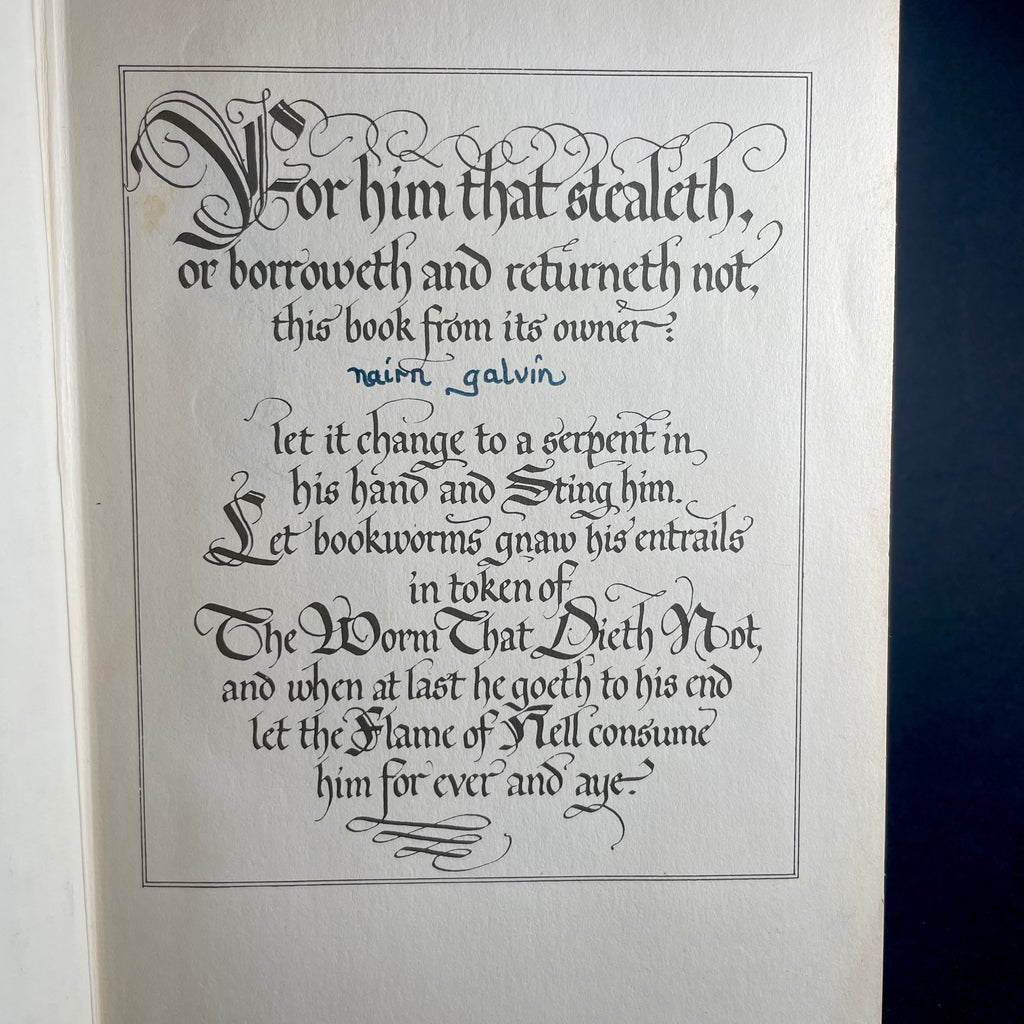 For him that stealeth,
or borroweth and returneth not,
this book from its owner:
nairn galvin
let it change to a serpent in
his hand and Sting him.
Let bookworms gnaw his entrails
in token of
The Worm That Dieth Not,
and when at last he goeth to his end
let the Flame of Hell consume
him for ever and aye.